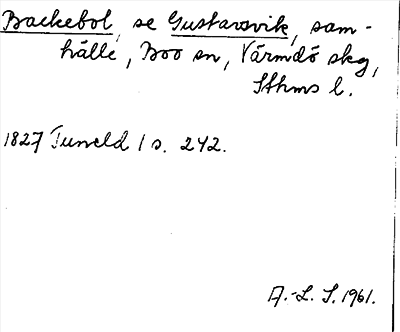 Backebol, se Gustavsvik, sam-
hälle, Boo sn, Värmdö skg,
Sthms l.
1827 Tuneld 1 s. 242.
A.-L. S. 1961.